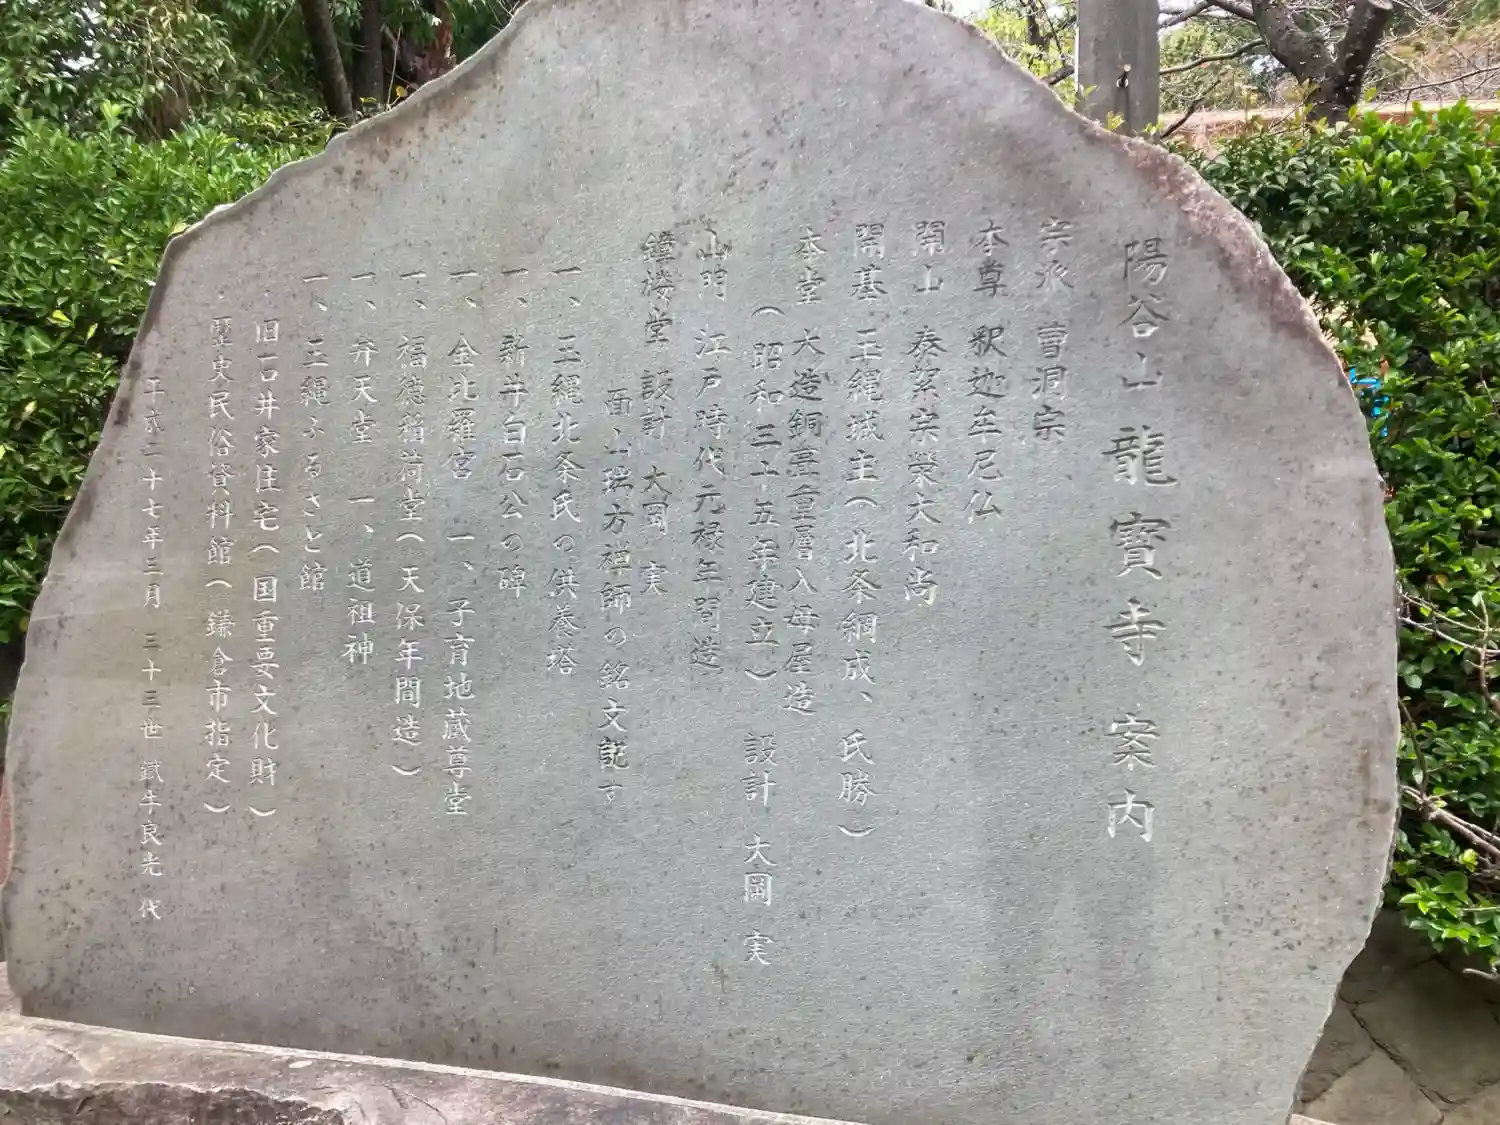 陽谷山 龍寳寺 案内
宗派 曹洞宗
本尊 釈迦牟尼仏
開山 泰絮宗榮大和尚
開基 玉縄城主(北条綱成、氏勝)
本堂 大造銅葺重層入母屋造
(昭和三十五年建立) 設計 大岡 実
山門 江戸時代元禄年間造
鐘楼堂 設計 大岡 実
面山瑞方禅師の銘文記す
一、玉縄北条氏の供養塔
一、新井白石公の碑
一、金比羅宮 一、子育地蔵尊堂
一、福徳稲荷堂(天保年間造)
一、弁天堂 一、道祖神
一、玉縄ふるさと館
旧石井家住宅(国重要文化財)
歴史民俗資料館(鎌倉市指定)
平成二十七年三月 三十三世 鉄牛良光 代